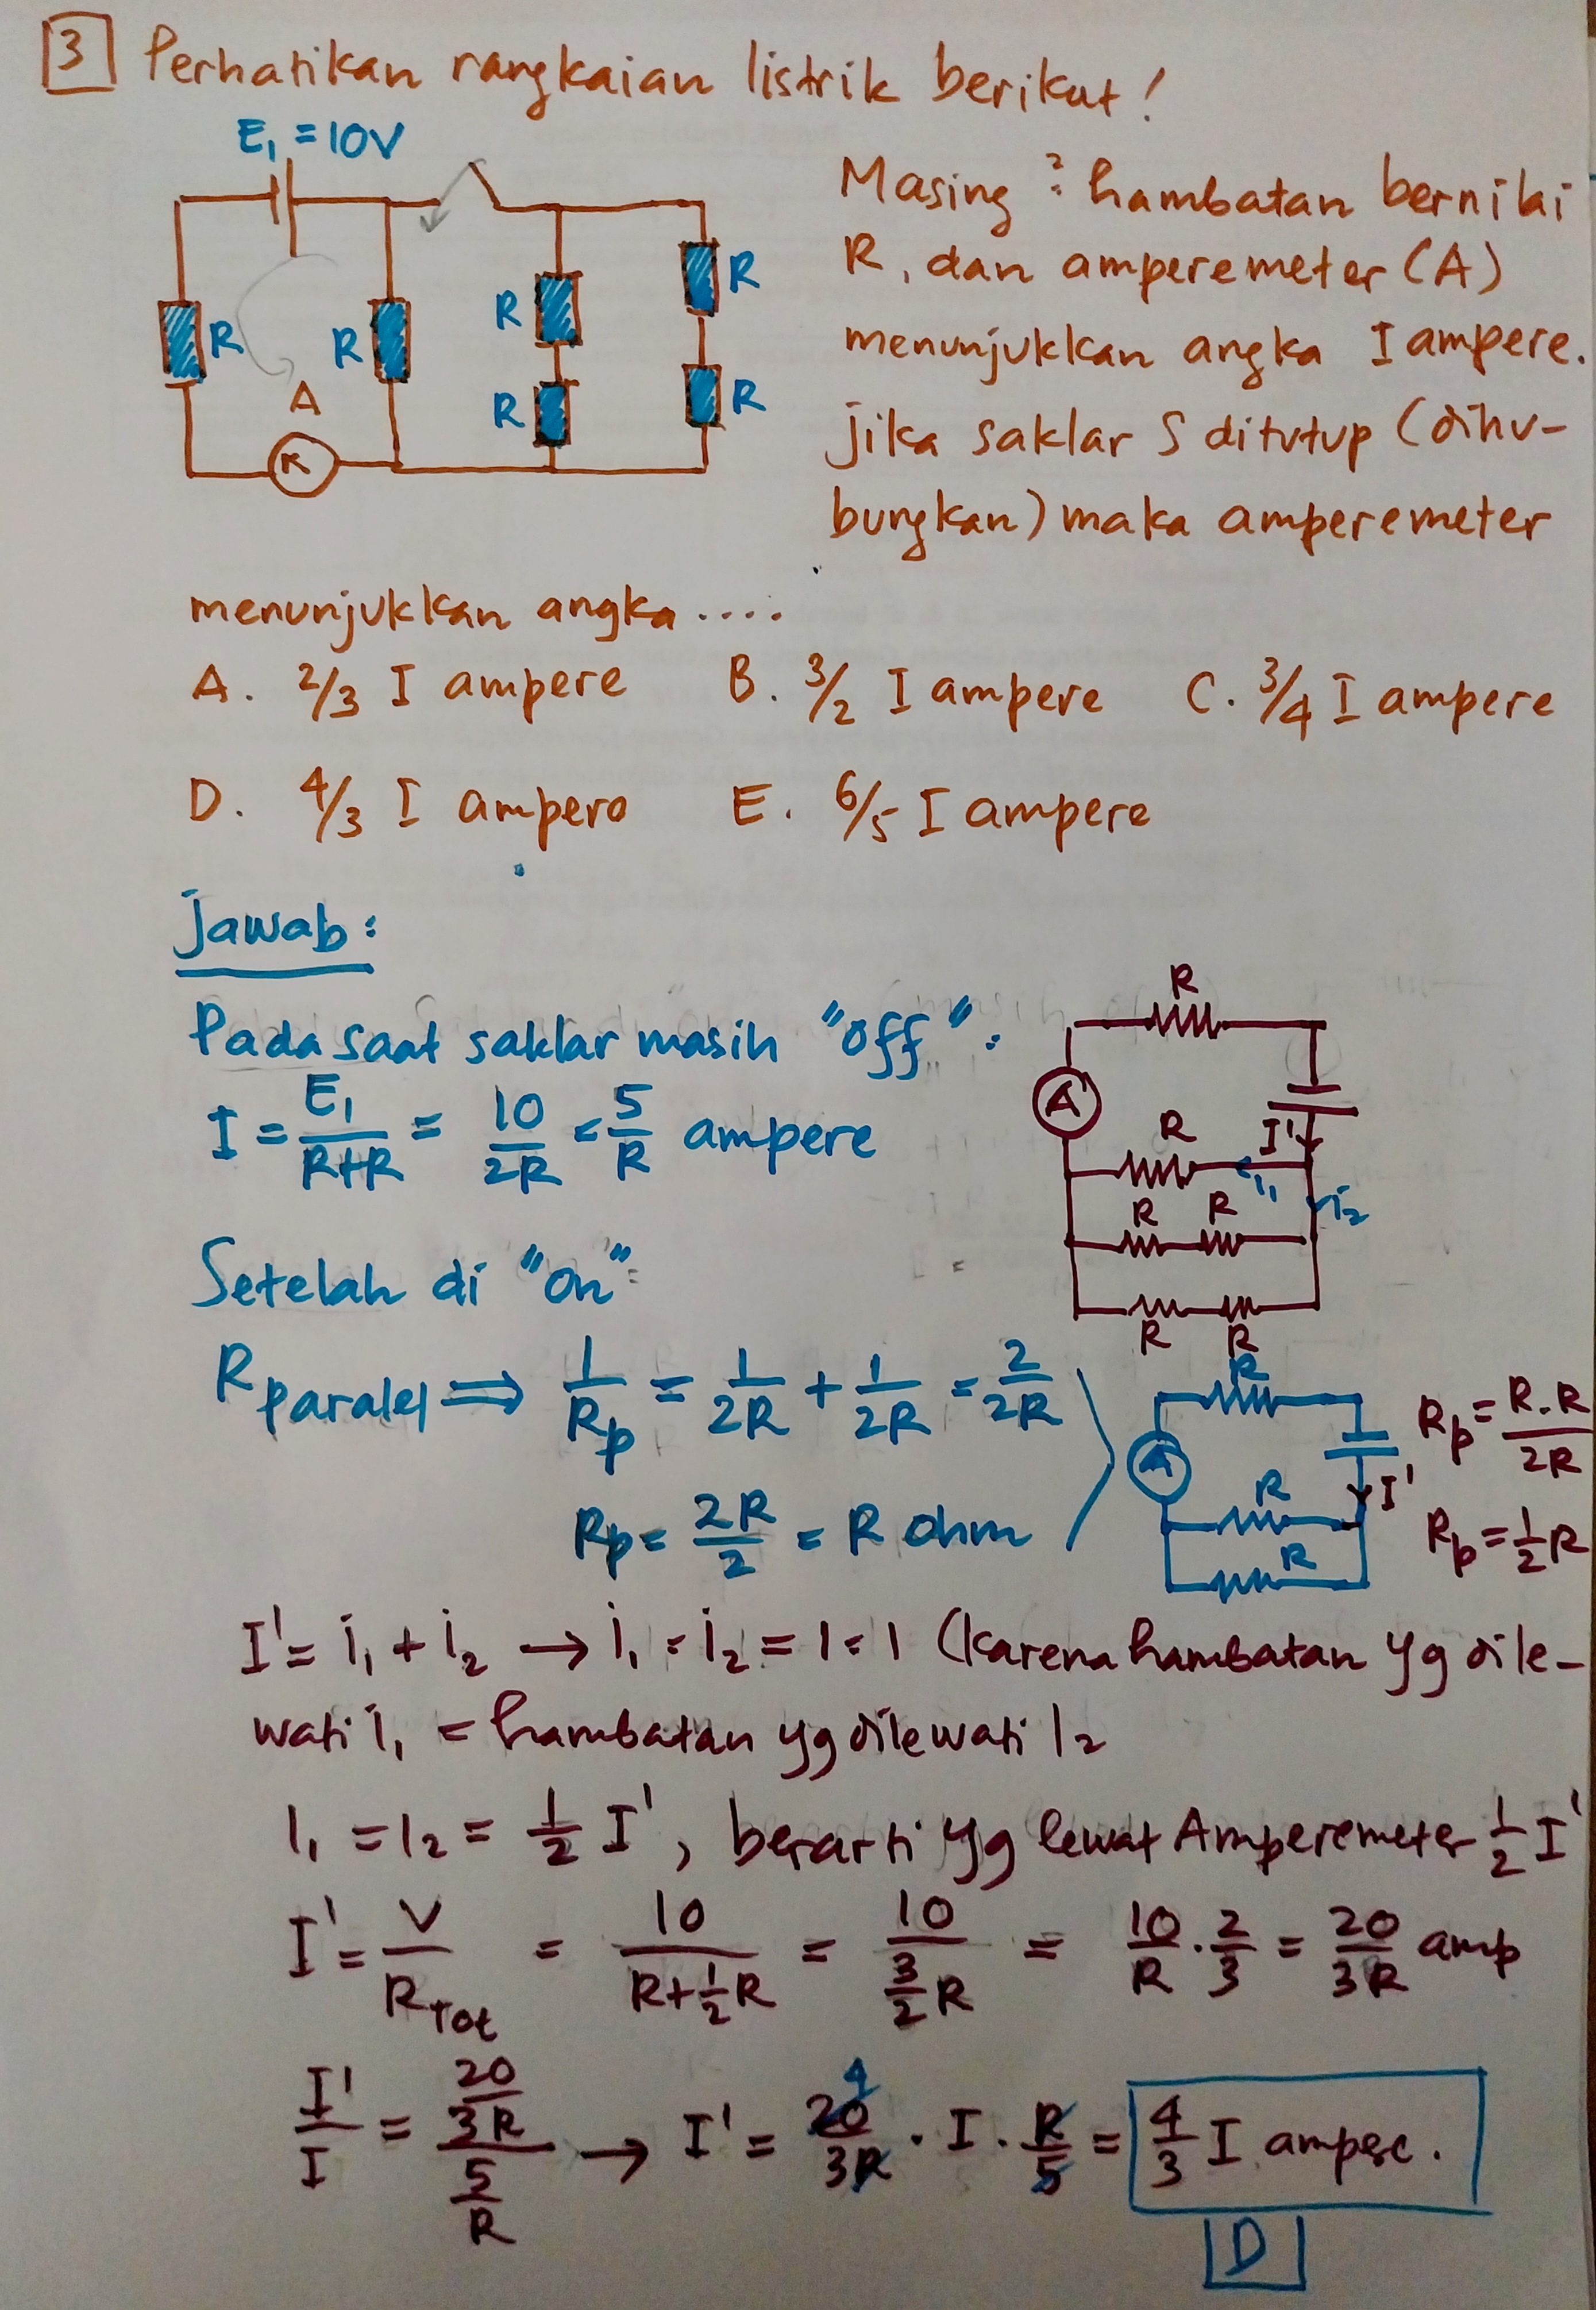 3 Perhatikan rangkaian listrik berikut!
E₁ = 10V
R
R
R
R
R
R
A
Masing² hambatan bernilai
R, dan amperemeter (A)
menunjukkan angka I ampere.
jika saklar S ditutup (dihu-
bungkan) maka amperemeter
menunjukkan angka ....
A. 2/3 I ampere B. 3/2 I ampere C. 3/4 I ampere
D. 4/3 I ampere E. 6/5 I ampere
Jawab:
Pada saat saklar masih "off":
I = E₁/(R+R) = 10/2R = 5/R ampere
R
A
R
I'
i₁
i₂
R R
R R
Setelah di "on":
R paralel ⇒ 1/Rp = 1/2R + 1/2R = 2/2R
Rp = 2R/2 = R ohm
R
A
R
I'
R
Rp = R.R/2R
Rp = 1/2 R
I' = i₁ + i₂ → i₁ : i₂ = 1 : 1 (karena hambatan yg dile-
wati i₁ = hambatan yg dilewati I₂
I₁ = I₂ = 1/2 I', berarti yg lewat Amperemeter 1/2 I'
I' = V/R Tot = 10/(R + 1/2 R) = 10/(3/2 R) = 10/R . 2/3 = 20/3R amp
I'/I = (20/3R)/(5/R) → I' = 20/3R . I . R/5 = 4/3 I ampere.
4
D